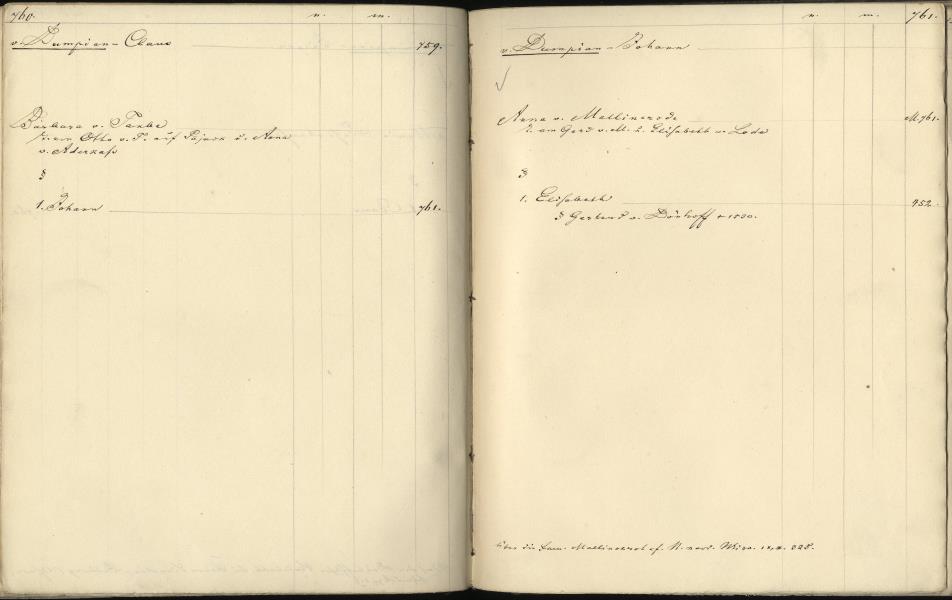 760. n. m.
v. Dumpian - Claus 759.
Barbara v. Taube
v. Otto v. T. auf u. Anna
v. Aderkaß
§
1. Johann 761.
n. m. 761.
v. Dumpian - Johann
Anna v. Mallinerode M. 761.
Gerd v. M. Elisabeth v. Lode
§
1. Elisabeth 952.
§ Gerhard v. Dönhoff + 1530.
Über die Fam. Mallinerode cf. N. nord. 328.